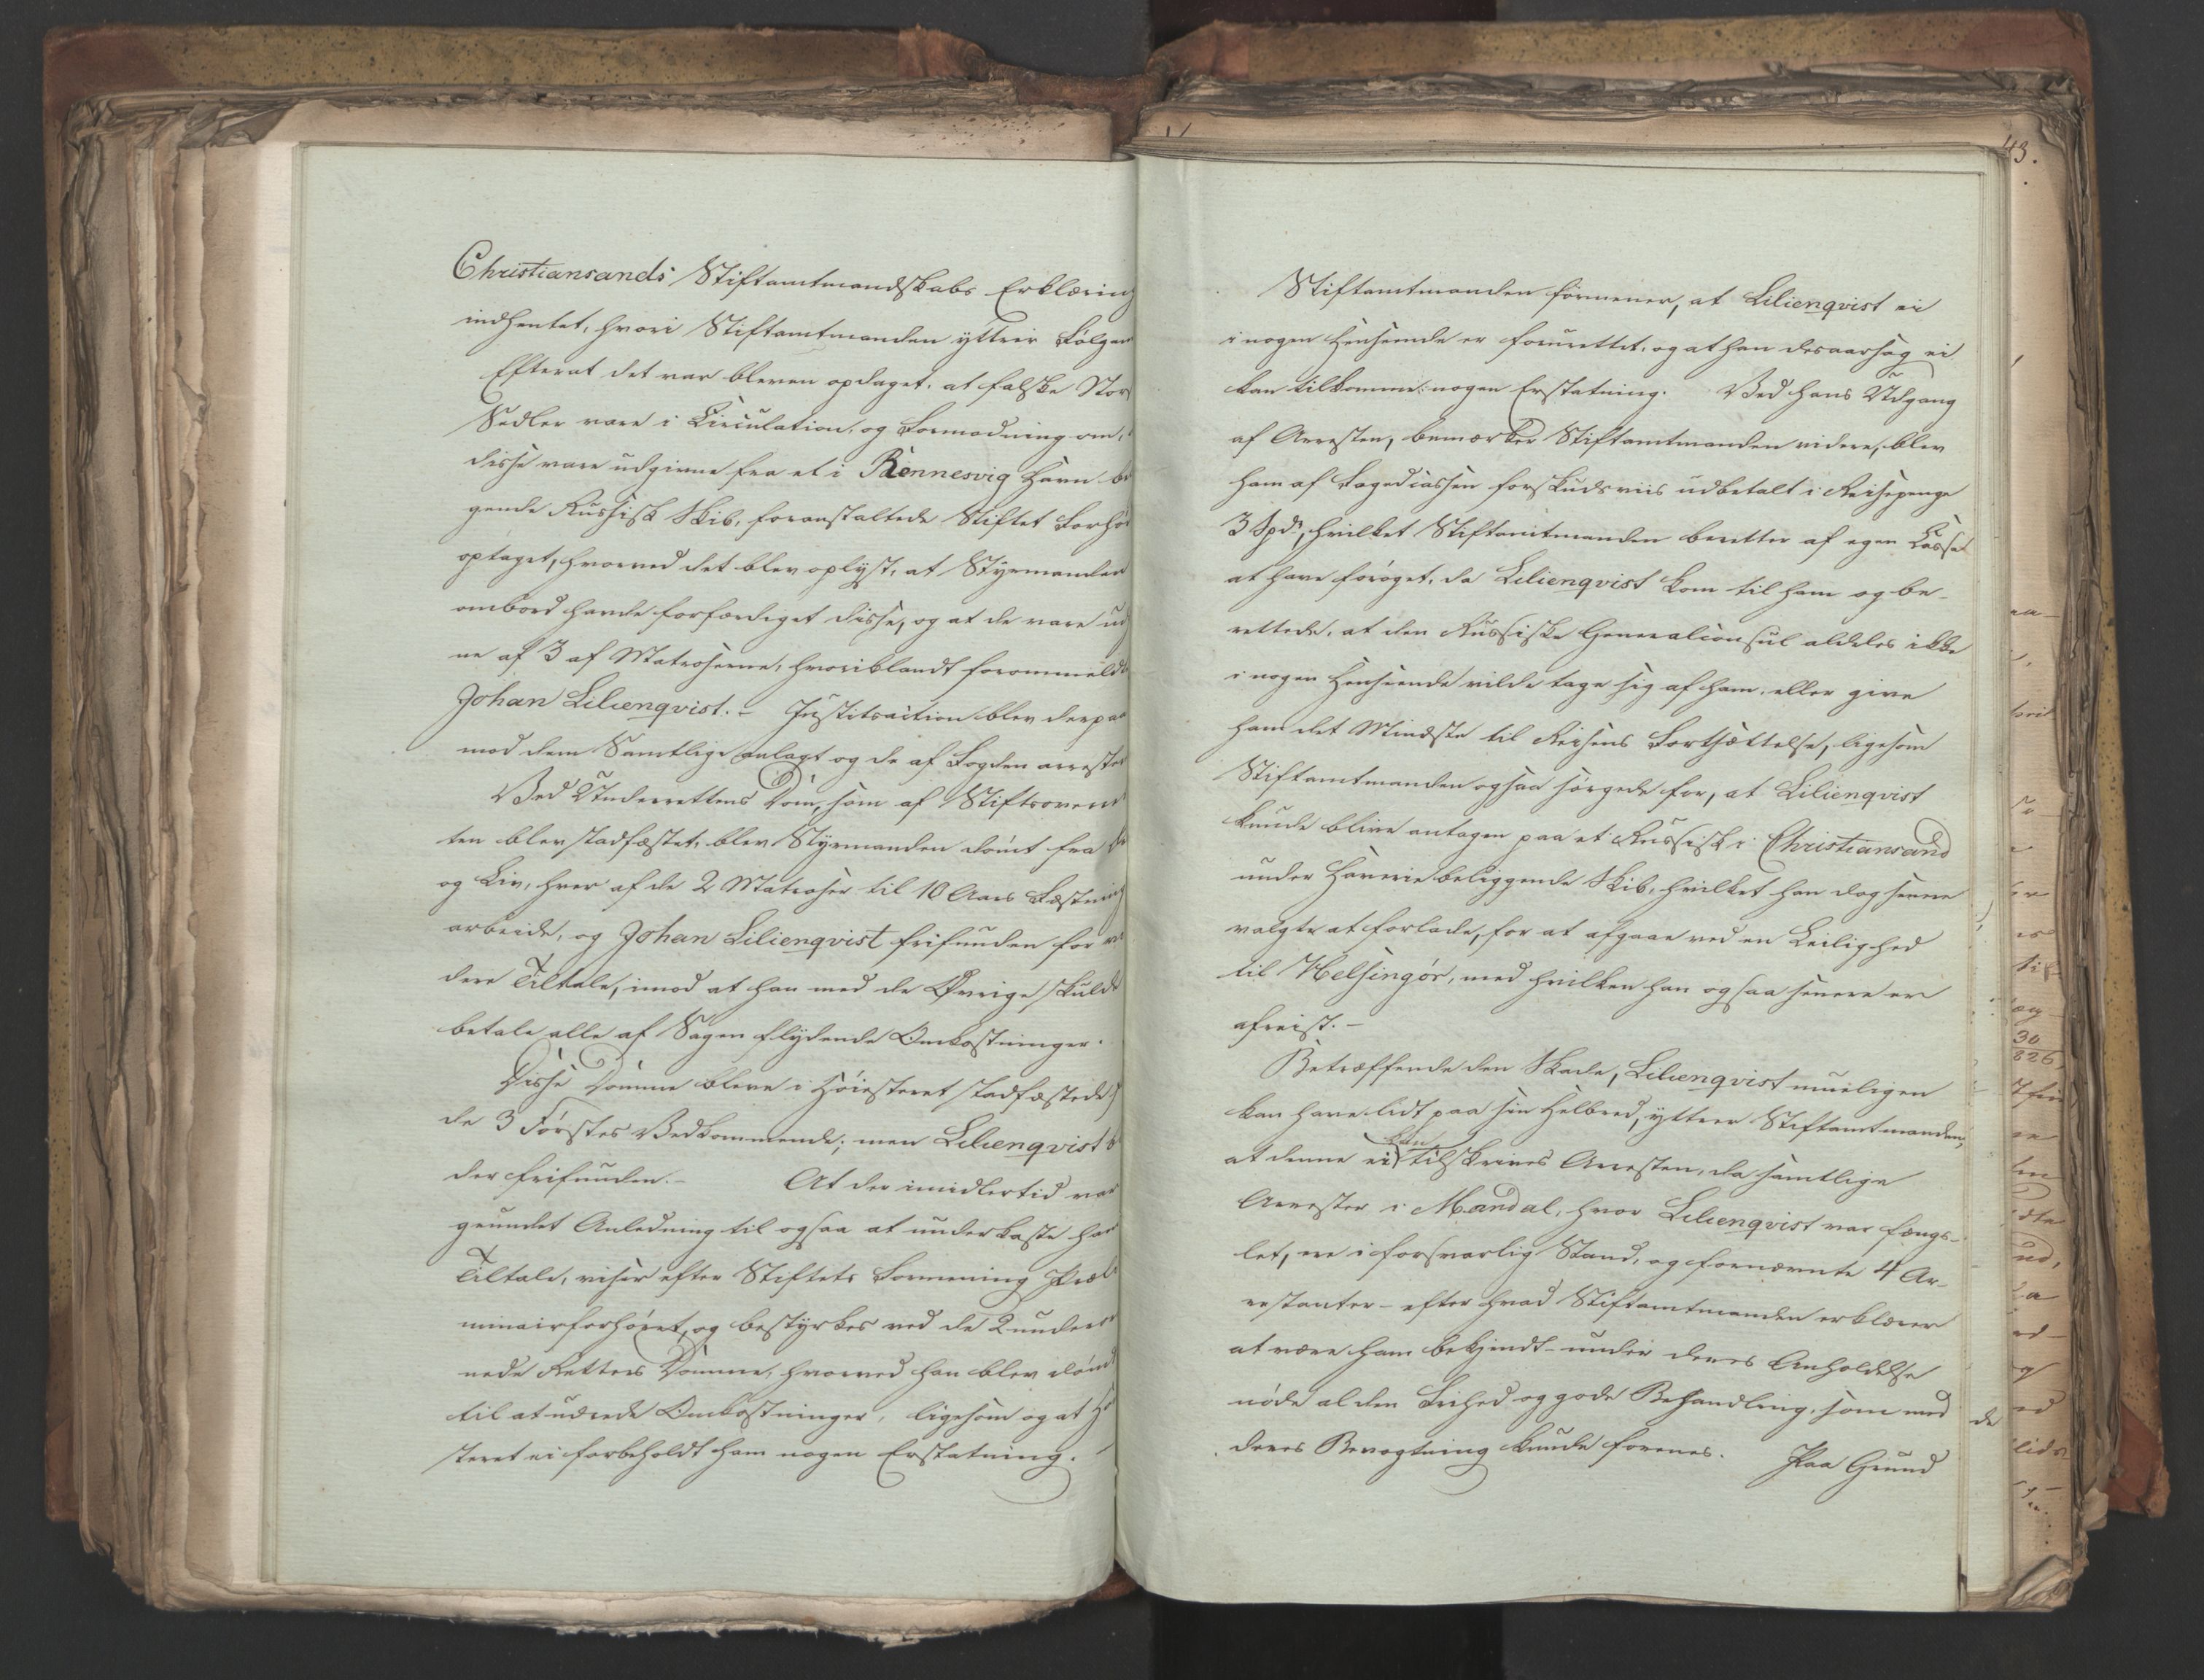 Christiansands Stiftamtmandskabs Erklæring
indhentet, hvori Stiftamtmanden yttrer Følgen
Efterat det var bleven opdaget, at falske Stor
Sedler vare i Circulation, og Formodning om,
disse vare udgivne fra et i Rönnesvig Havn be
gende Russisk Skib, foranstaltede Stiftet Forhör
optaget, hvorved det blev oplyst, at Styrmanden
ombord havde forfærdiget disse, og at de vare ud
ne af 3 af Matroserne, hvoriblandt forommeldte
Johan Lilienqvist. – Justitsaction blev derpaa
mod dem Samtlige anlagt og de af Fogden arrester
Ved Underrettens Dom, som af Stiftsoverret
ten blev stadfæstet, blev Styrmanden dömt fra
og Liv, hver af de 2 Matroser til 10 Aars Fæstning
arbeide, og Johan Lilienqvist frifunden for vi
dere Tiltale, imod at han med de Øvrige skulde
betale alle af Sagen flydende Omkostninger.
Disse Domme bleve i Höiesteret stadfæstede
de 3 Förstes Vedkommende; men Lilienqvist b
der frifunden. – At der imidlertid var
grundet Anledning til ogsaa at underkaste ham
Tiltale, viser efter Stiftets Formening Præli
minairforhöret, og bestyrkes ved de 2 under
nede Retters Domme, hvorved han blev dömt
til at udrede Omkostninger, ligesom og at Hö
steret ei forbeholdt ham nogen Erstatning.
43.
Stiftamtmanden formener, at Lilienqvist ei
i nogen Henseende er forurettet, og at han desaarsag ei
kan tilkomme nogen Erstatning. Ved hans Udgang
af Arresten, bemærker Stiftamtmanden videre, blev
ham af Fogedcassen forskudsviis udbetalt i Reisepenge
3 Spd, hvilket Stiftamtmanden beretter af egen Casse
at have foröget, da Lilienqvist kom til ham og be-
rettede, at den Russiske Generalconsul aldeles ikke
i nogen Henseende vilde tage sig af ham, eller give
ham det Mindste til Reisens Fortsættelse, ligesom
Stiftamtmanden ogsaa sörgede for, at Lilienqvist
kunde blive antagen paa et Russisk i Christiansand
under Haverie beliggende Skib, hvilket han dog senere
valgte at forlade, for at afgaae ved en Leilighed
til Helsingör, med hvilken han ogsaa senere er
afreist. –
Betræffende den Skade, Lilienqvist mueligen
kan have lidt paa sin Helbred, yttrer Stiftamtmanden,
at denne ei kan tilskrives Arresten, da samtlige
Arrester i Mandal, hvor Lilienqvist var fængs-
let, ere i forsvarlig Stand, og fornævnte 4 Ar-
restanter – efter hvad Stiftamtmanden erklærer
at være ham bekjendt – under deres Anholdelse
nöde al den Frihed og gode Behandling, som med
deres Bevogtning kunde forenes. Paa Grund